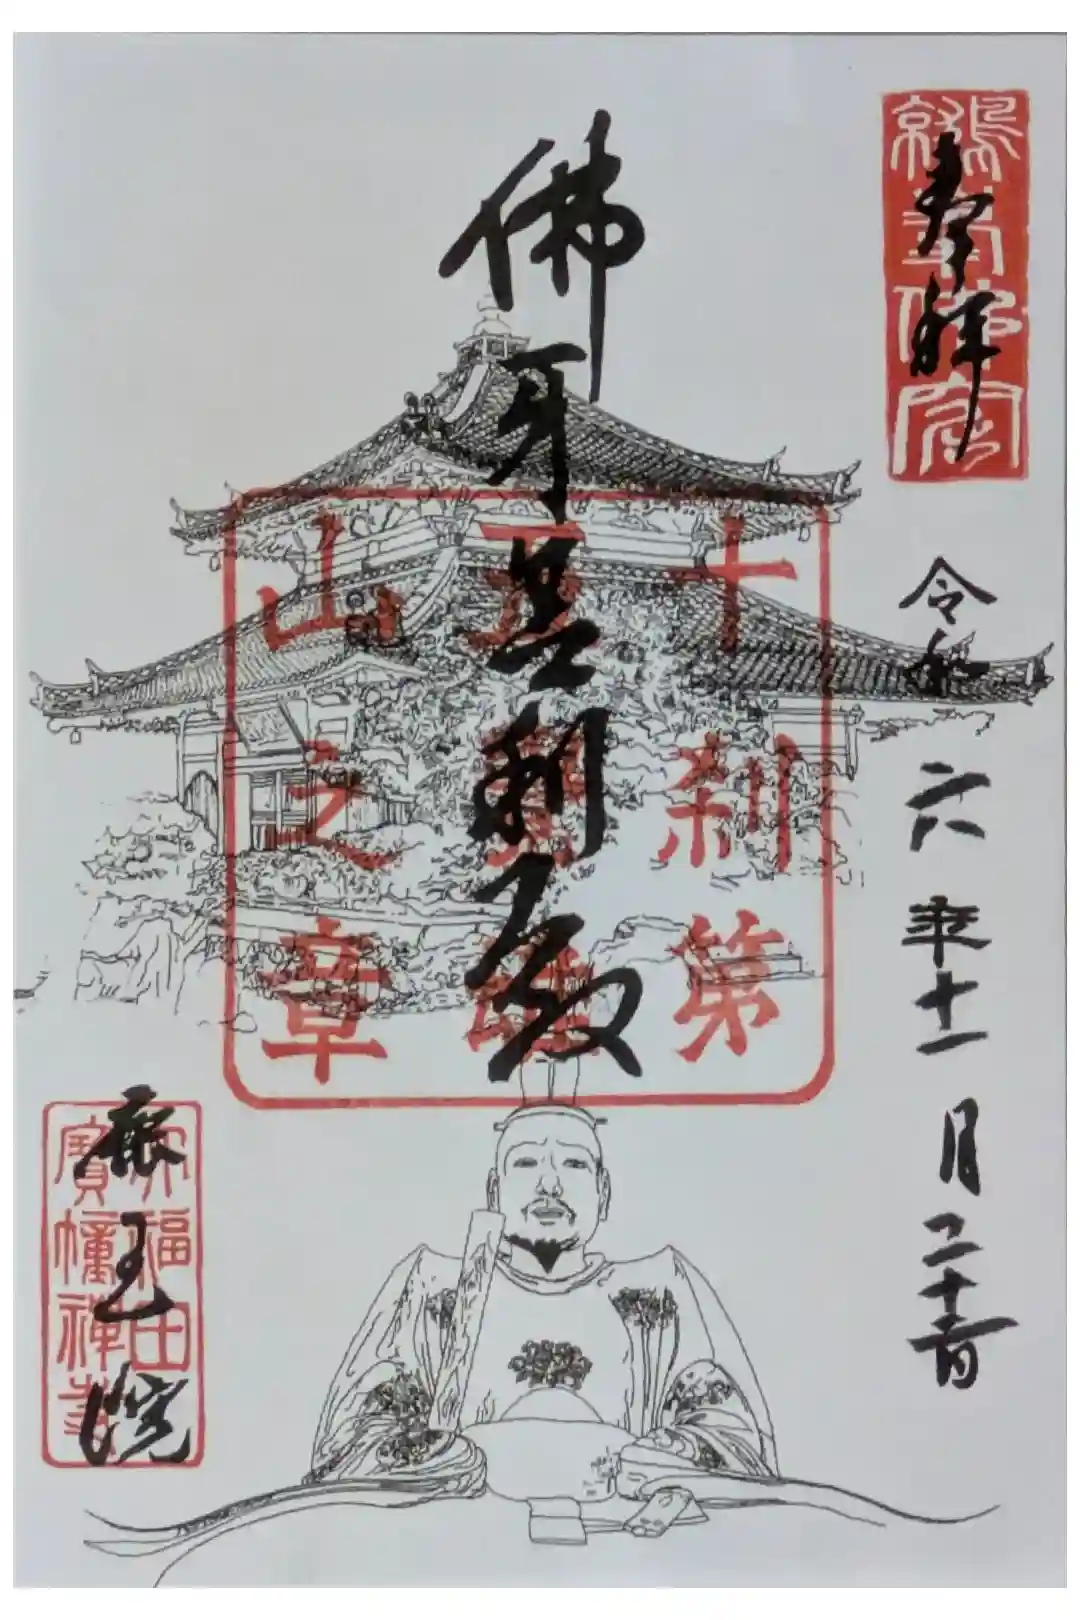 奉拝
令和六年十一月二十三日
佛牙舎利殿
十刹第
五覺雄
山之章
鹿王院
大福田
寶幢禅寺